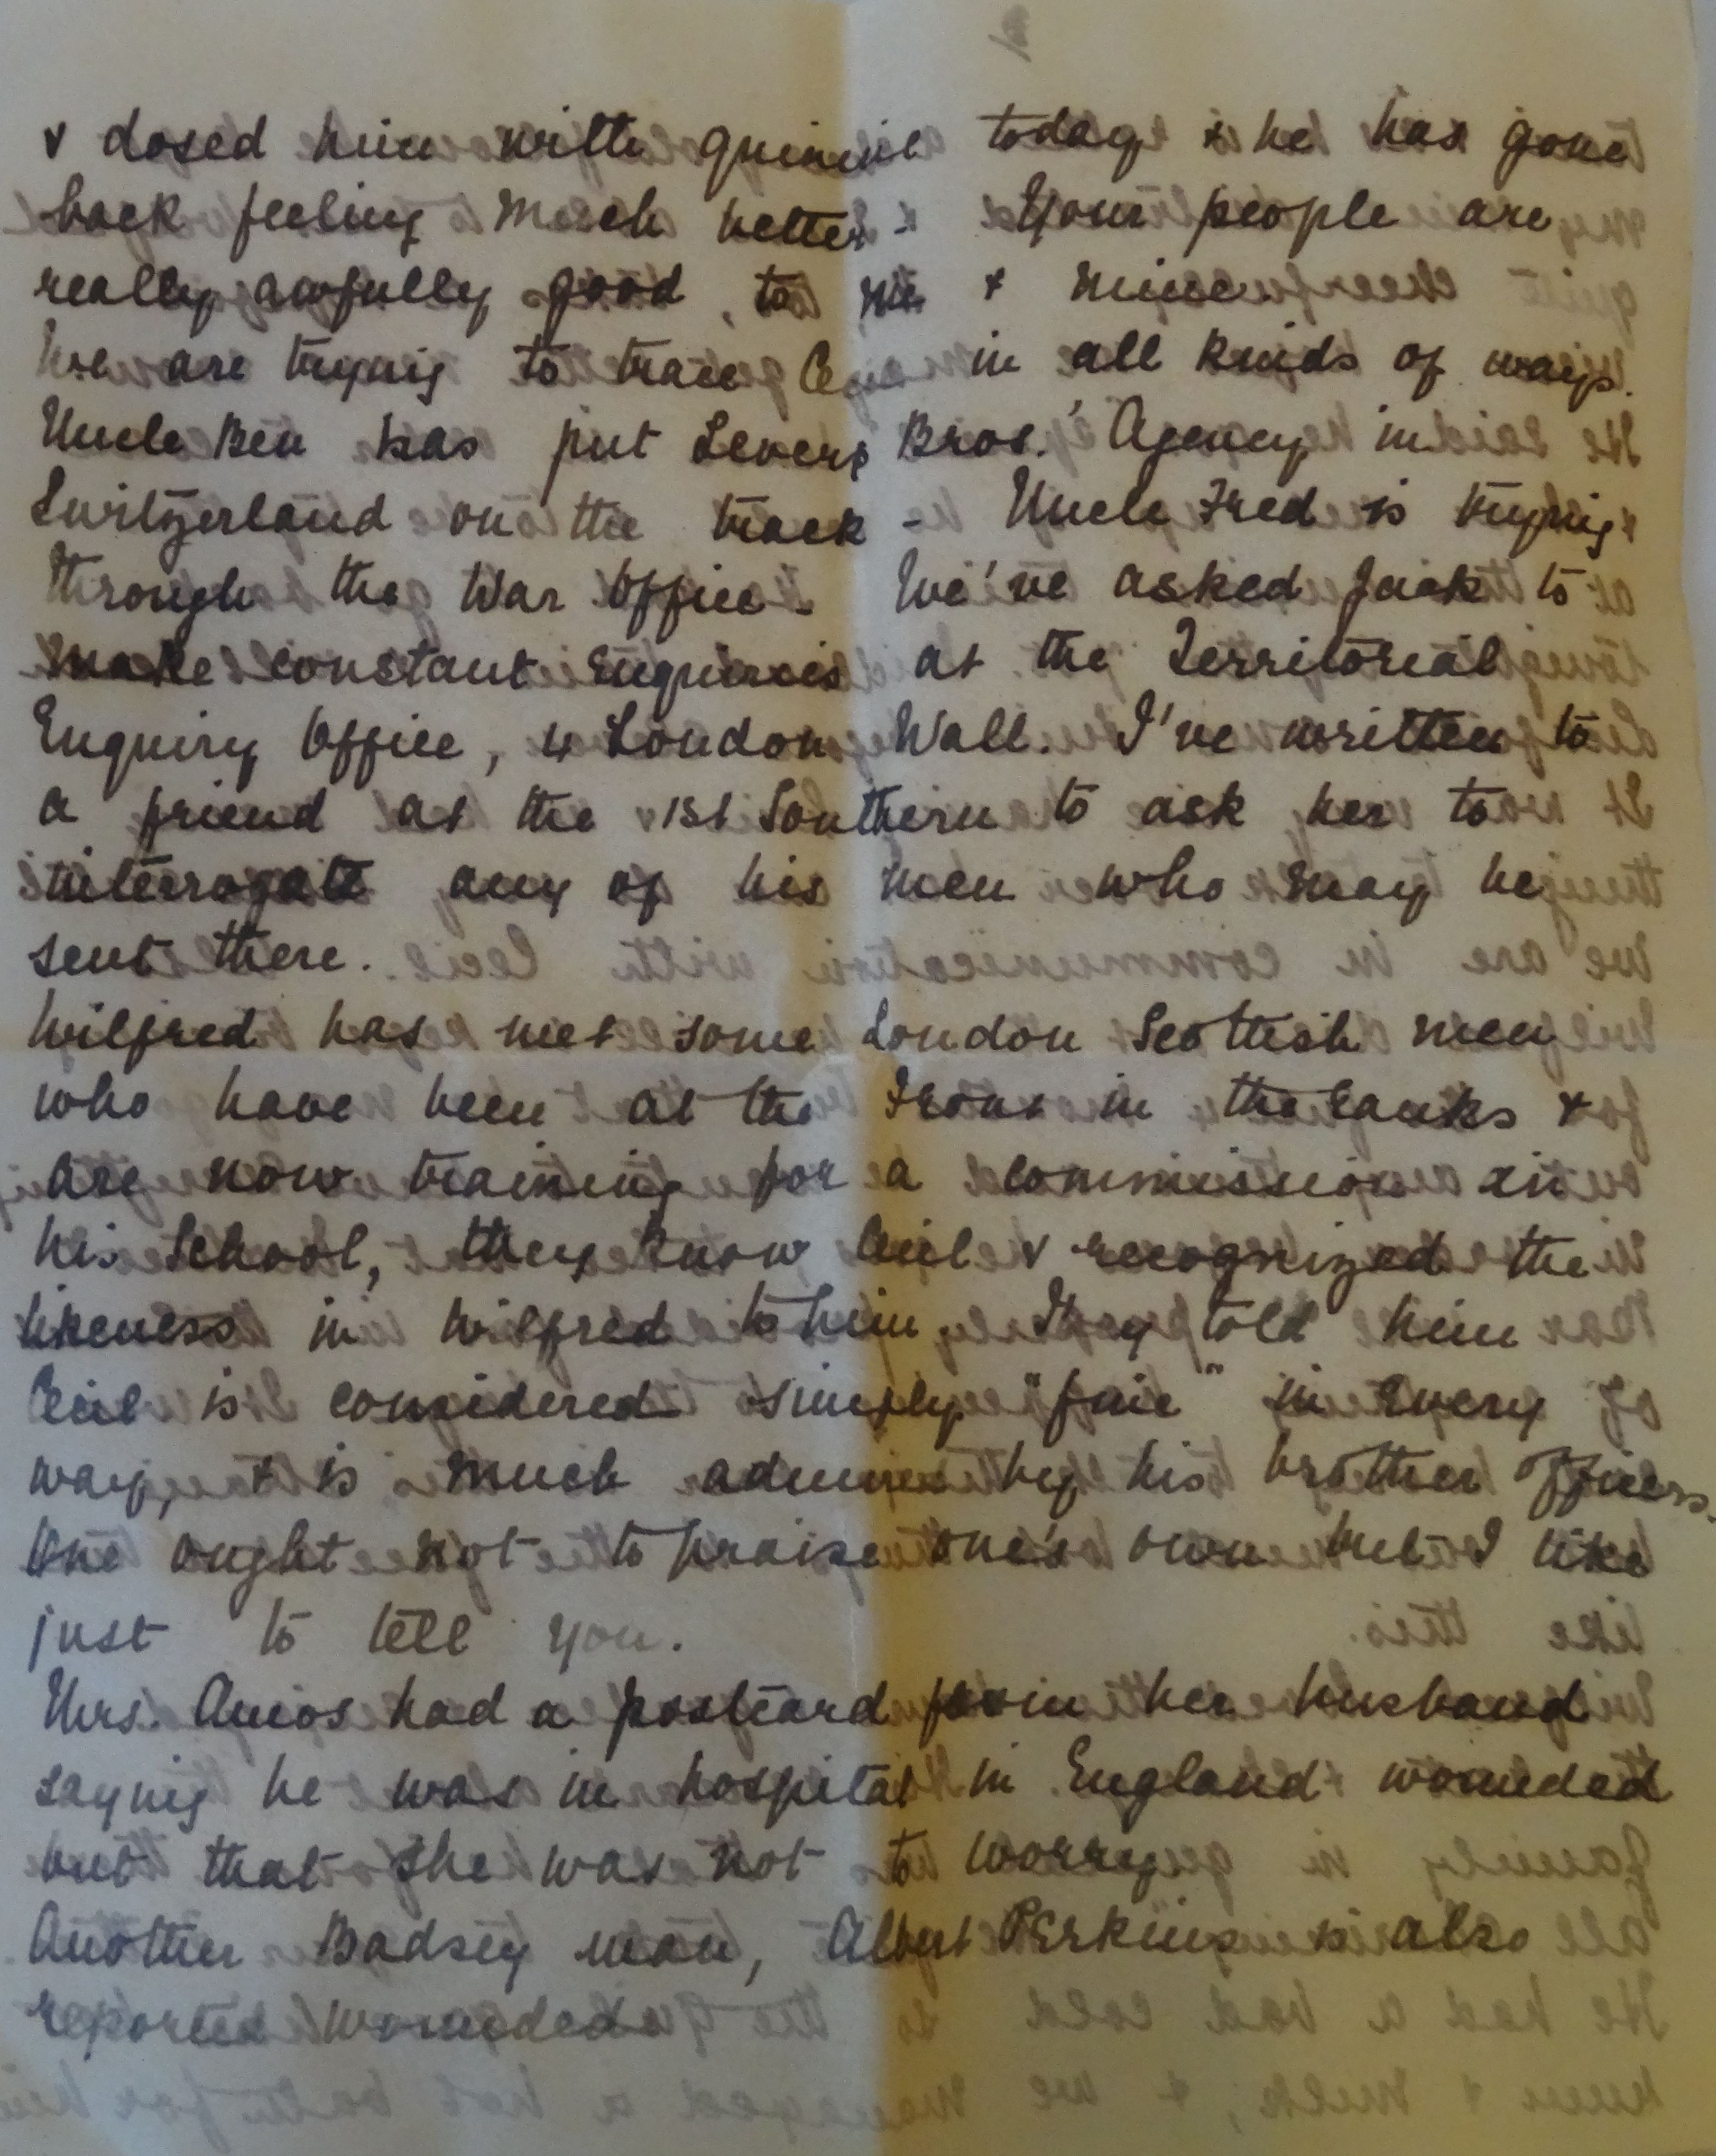 & dosed him with quinine today & he has gone
back feeling much better - Your people are
really awfully good, to me & mine.
We are trying to trace in all kinds of ways.
Uncle Ben has put Levers Bros.' Agency in
Switzerland on the track - Uncle Fred is trying
through the War Office - We've asked Jack to
make constant Enquiries at the Territorial
Enquiry Office, 4 London Wall. I've written to
a friend at the 1st Southern to ask her to
interrogate any of his men who may be
sent there.
Wilfred has met some London Scottish men
who have been at the Front in the ranks &
are now training for a commission in
his School, they know Cecil & recognized the
likeness in Wilfred to him. They told him
Cecil is considered simply "fine" in every
way, & is much admired by his brother Officers.
One ought not to praise one's own but I like
just to tell you.
Mrs. Amos had a postcard from her husband
saying he was in hospital in England wounded
but that she was not to worry
Another Badsey man, Albert Perkins is also
reported wounded